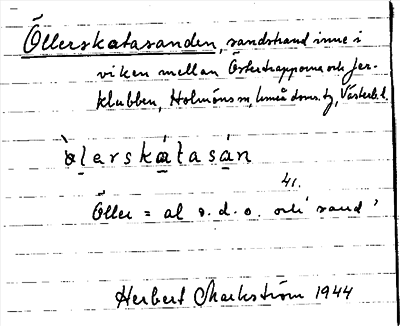 Öllerskatasanden, sandstrand inne i
viken mellan Österkapparna och Jer-
klubben, Holmöns sn, Umeå doms. tg, Västerb. l.
òlerskátasán
41.
Öller = al s. d. o. och 'sand'
Herbert Markström 1944